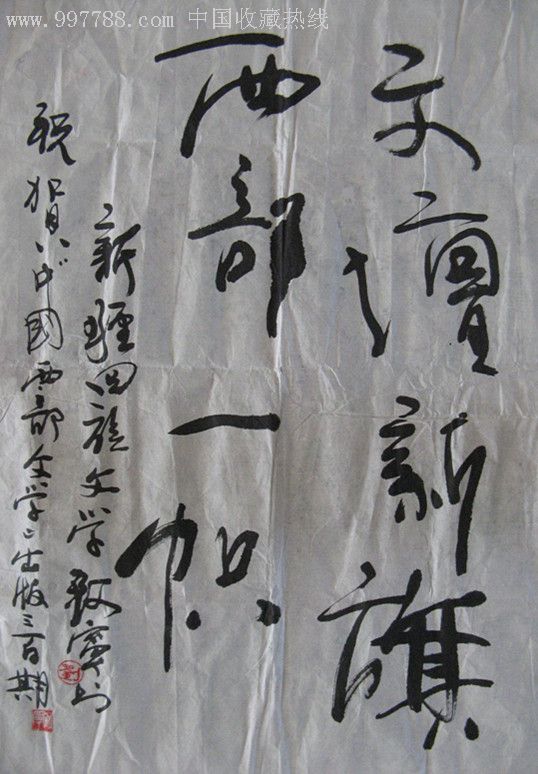 www.997788.com 中国收藏热线
文壇新旗
西部一帜
新疆回族文学
祝贺《中國西部文学》出版三百期